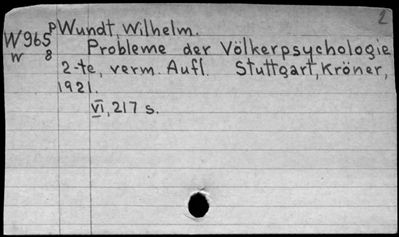 2
pWundt, Wilhelm.
W965
Probleme der Völkerpsychologie
w 8
2-te, verm. Aufl. Stuttgart, Kröner,
1921.
VI, 217 s.